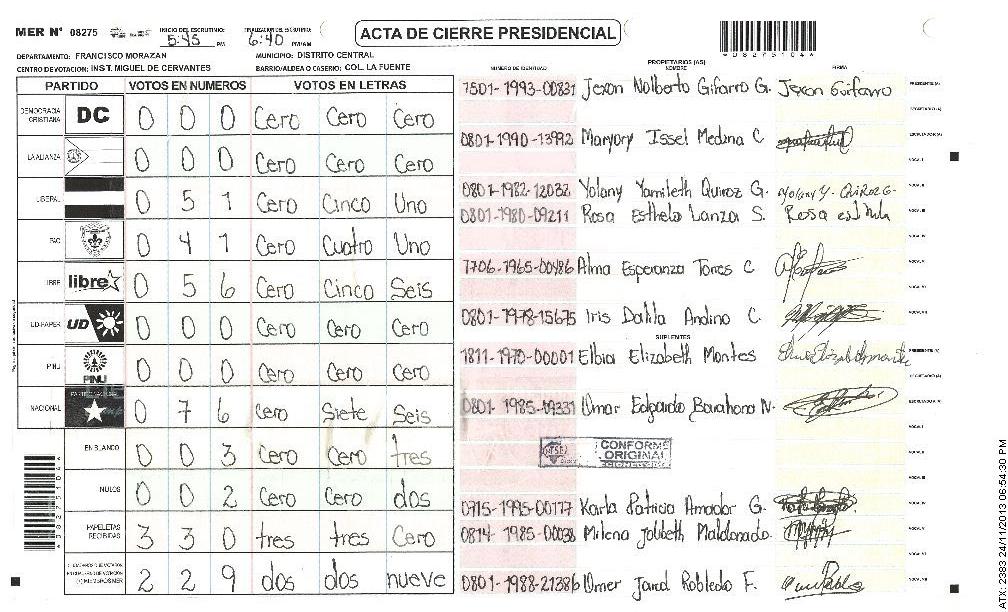 MER N° 08275 INICIO DEL ESCRUTINIO: 5:45 PM FINALIZACION DEL ESCRUTINIO: 6:40 PM/AM
ACTA DE CIERRE PRESIDENCIAL
08275104
DEPARTAMENTO: FRANCISCO MORAZAN MUNICIPIO: DISTRITO CENTRAL
CENTRO DE VOTACION: INST. MIGUEL DE CERVANTES BARRIO/ALDEA O CASERIO: COL. LA FUENTE
PARTIDO VOTOS EN NUMEROS VOTOS EN LETRAS
DEMOCRACIA CRISTIANA DC 0 0 0 Cero Cero Cero
LA ALIANZA 0 0 0 Cero Cero Cero
LIBERAL 0 5 1 Cero Cinco Uno
PAC 0 4 1 Cero Cuatro Uno
LIBRE libre 0 5 6 Cero Cinco Seis
UD-FAPER UD 0 0 0 Cero Cero Cero
PINU PINU 0 0 0 Cero Cero Cero
NACIONAL 0 7 6 Cero Siete Seis
EN BLANCO 0 0 3 Cero Cero tres
NULOS 0 0 2 Cero Cero dos
PAPELETAS RECIBIDAS 3 3 0 tres tres Cero
2 2 9 dos dos nueve
NUMERO DE IDENTIDAD PROPIETARIOS (AS) NOMBRE FIRMA
1501-1993-00831 Jexon Nolberto Gifarro G. Jexon Guifarro PRESIDENTE (A)
SECRETARIO (A)
0801-1990-13992 Maryory Issel Medina C ESCRUTADOR (A)
VOCAL I
0801-1982-12032 Yolany Yamileth Quiroz G. Yolany Y. Quiroz G. VOCAL II
0801-1980-09211 Rosa Esthela Lanza S. Rosa esthela VOCAL III
VOCAL IV
1706-1965-00486 Alma Esperanza Torres C VOCAL V
VOCAL VI
0801-1978-15675 Iris Dalila Andino C. VOCAL VII
SUPLENTES
1811-1970-00001 Elbia Elizabeth Montes PRESIDENTE (A)
SECRETARIO (A)
0801-1985-09331 Omar Edgardo Barahona N. ESCRUTADOR (A)
VOCAL I
TSE CONFORME ORIGINAL VOCAL II
VOCAL III
0715-1995-00177 Karla Patricia Amador G. VOCAL IV
0814-1985-00036 Milena Jolibeth Maldonado. VOCAL V
VOCAL VI
0801-1988-21386 Omer Jared Robledo F. VOCAL VII
ATX 2383 24/11/2013 06:54:30 PM